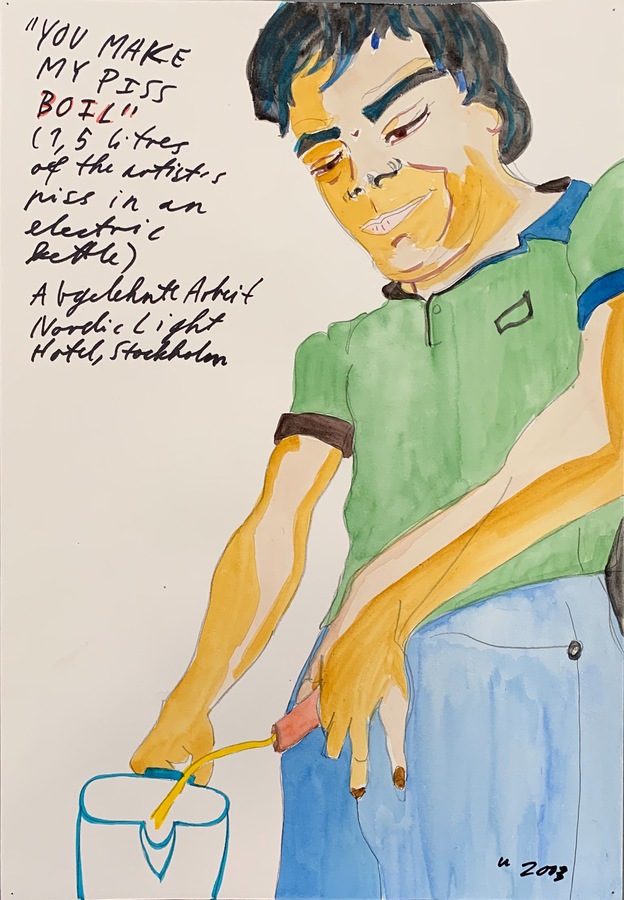 "YOU MAKE
MY PISS
BOIL"
(1,5 litres
of the artist's
piss in an
electric
kettle)
Abgelehnte Arbeit
Nordic Light
Hotel, Stockholm
u 2003